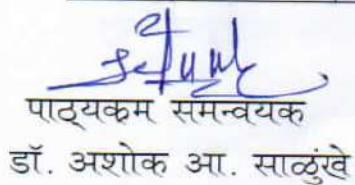 पाठ्यकम समन्वयक
डॉ. अशोक आ. साळुंखे